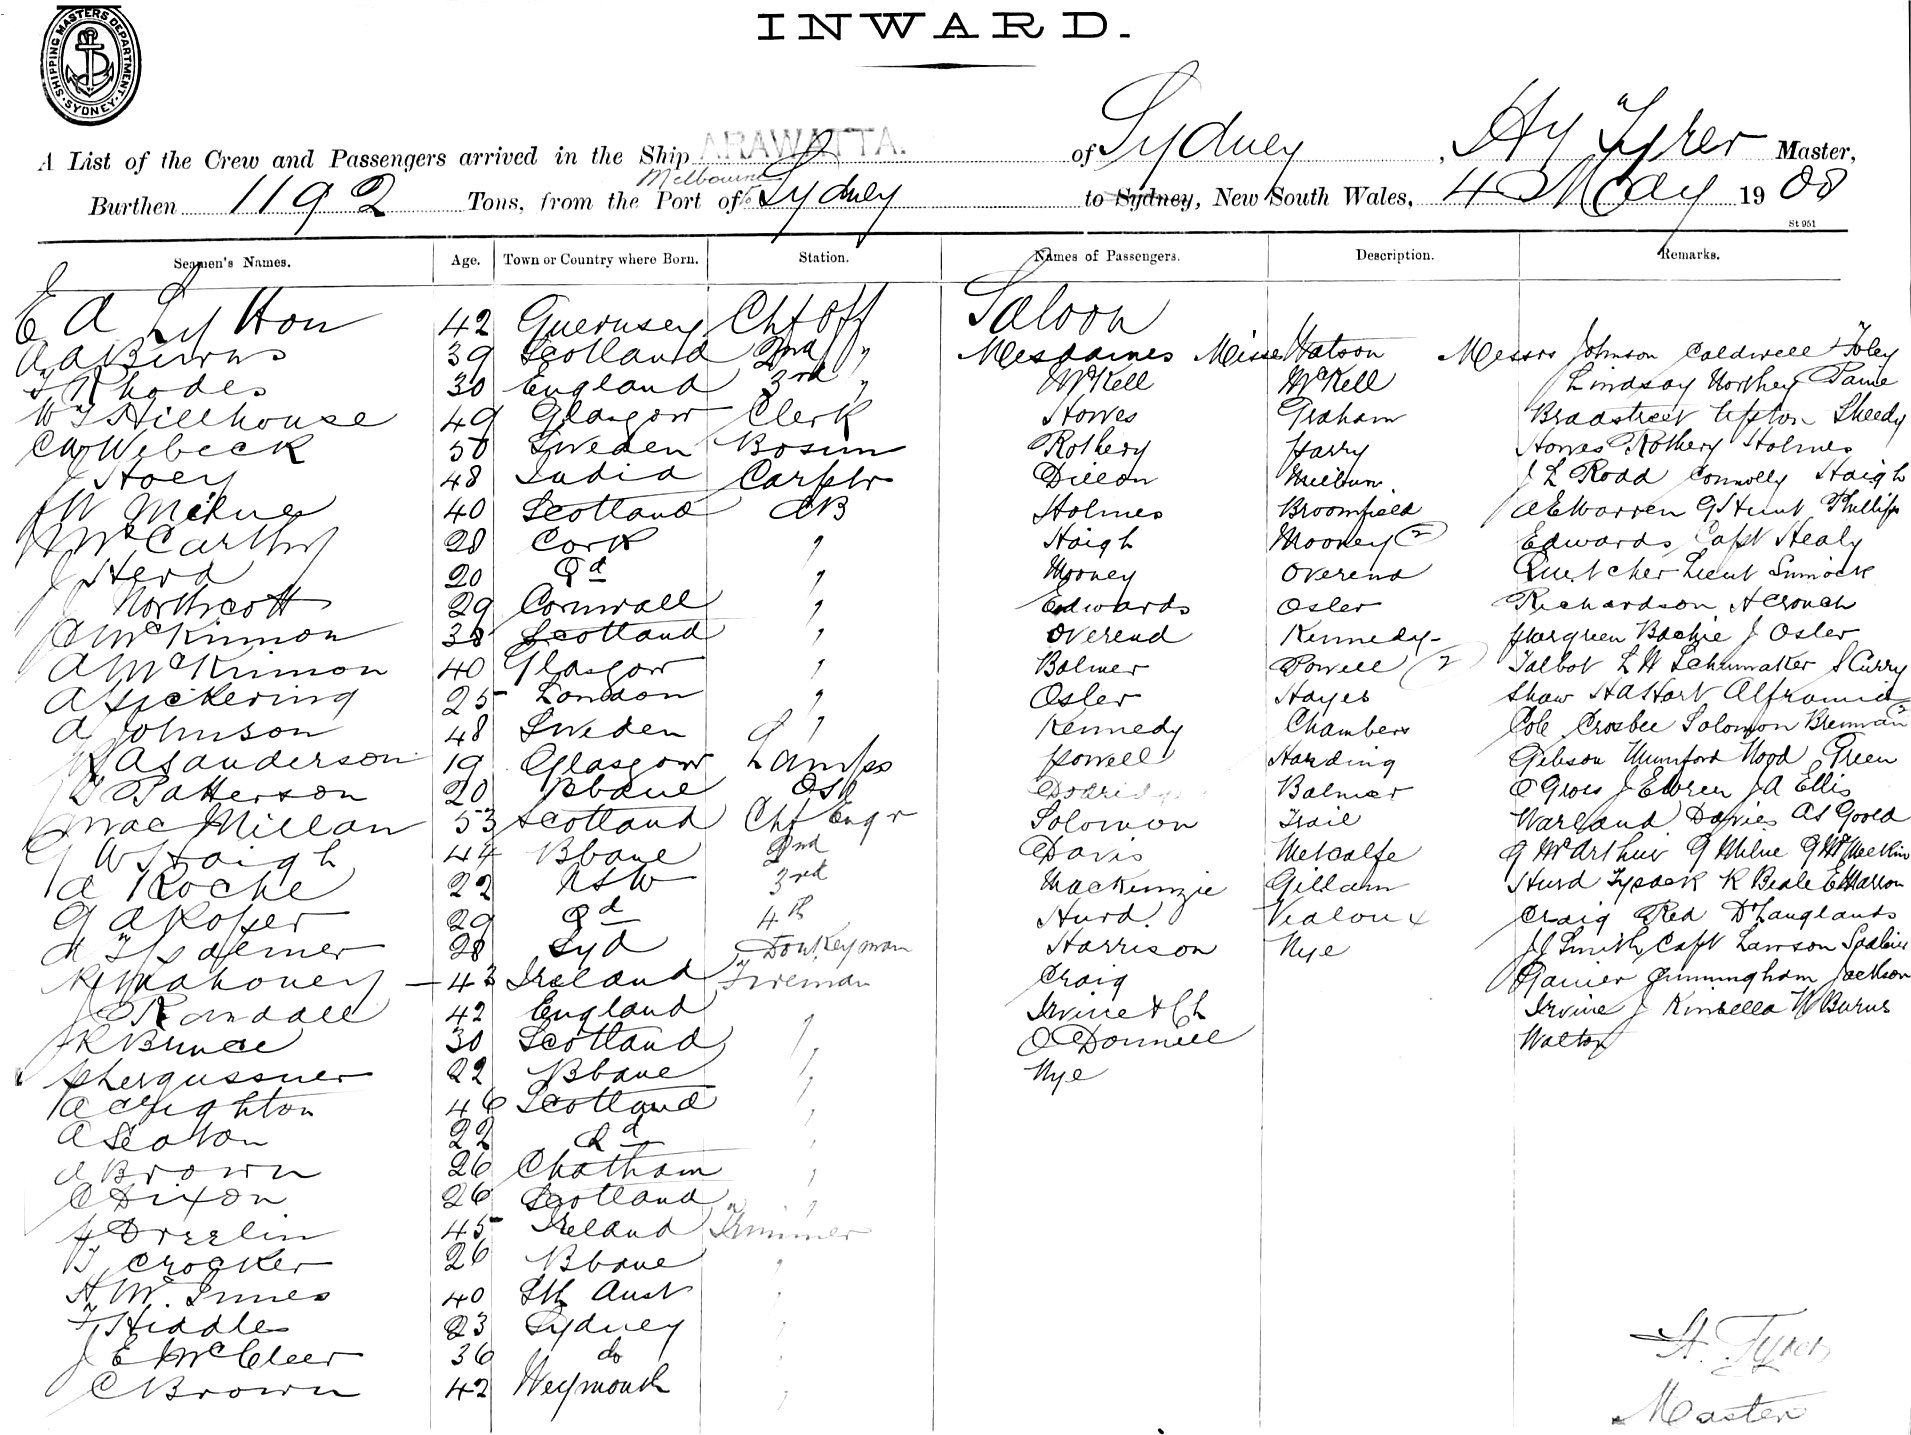 INWARD.
SHIPPING MASTERS DEPARTMENT. SYDNEY.
A List of the Crew and Passengers arrived in the Ship ARAWATTA. of Sydney, Hy Tyrer Master,
Burthen 1192 Tons, from the Port of Melbourne to Sydney to Sydney, New South Wales, 4 May 1908
St 951
Seamen's Names. Age. Town or Country where Born. Station. Names of Passengers. Description. Remarks.
E A Lytton 42 Guernsey Chf Off Saloon
A A Burns 39 Scotland 2nd " Mesdames Misses Watson Messrs Johnson Caldwell Foley
Rhodes 30 England 3rd " McKell McKell Lindsay Northey Paine
W Hillhouse 49 Glasgow Clerk Howes Graham Bradstreet Upton Sheedy
Webeck 50 Sweden Bosun Rothery Harry Howes Rothery Holmes
J Hoey 48 India Carptr Dillon Milbun J L Rodd Connolly Haigh
W Milne 40 Scotland AB Holmes Broomfield A E Warren G Hunt Phillips
McCarthy 28 Cork " Haigh Mooney 2 Edwards Capt Healy
J Herd 20 " Mooney Overend Lieut
J Northcott 29 Cornwall " Edwards Osler Richardson A Crouch
McKinnon 38 Scotland " Overend Kennedy Hargreen Backie J Osler
A McKinnon 40 Glasgow " Balmer Powell 2 Talbot L H Schumaker S Curry
A Pickering 25 London " Osler Hayes Shaw H A Hart
A Johnson 48 Sweden " Kennedy Chambers Cole Crosbee Solomon Brennan
A Sanderson 19 Glasgow Lamps Powell Harding Gibson Mumford Wood Green
Patterson 20 Bbane OS Balmer O Gross J Ewren J A Ellis
MacMillan 53 Scotland Chf Engr Solomon Trail Warland Davies
W Haigh 44 Bbane 2nd Davis Metcalfe G McArthur G Milne G McMeekin
A Roche 22 NSW 3rd Mackenzie Gillam Hurd Tysack R Beale
G A Roper 29 Qd 4th Hurd Craig Red D Langlands
28 Syd Donkeyman Harrison Nye J J Smith Capt Lawson
R Mahoney 43 Ireland Fireman Craig Cunningham Jackson
J Randall 42 England " Irvine & Ch Irvine J Kinsella W Burns
J R Bunce 30 Scotland " O'Donnell Walton
22 Bbane " Nye
46 Scotland "
A Seaton 22 "
A Brown 26 Chatham "
C Dixon 26 Scotland "
45 Ireland Trimmer
Crocker 26 Bbane "
H McInnes 40 Sth Aust "
T Hiddle 23 Sydney "
J E McCleer 36 do "
C Brown 42 Weymouth "
H. Tyrer
Master